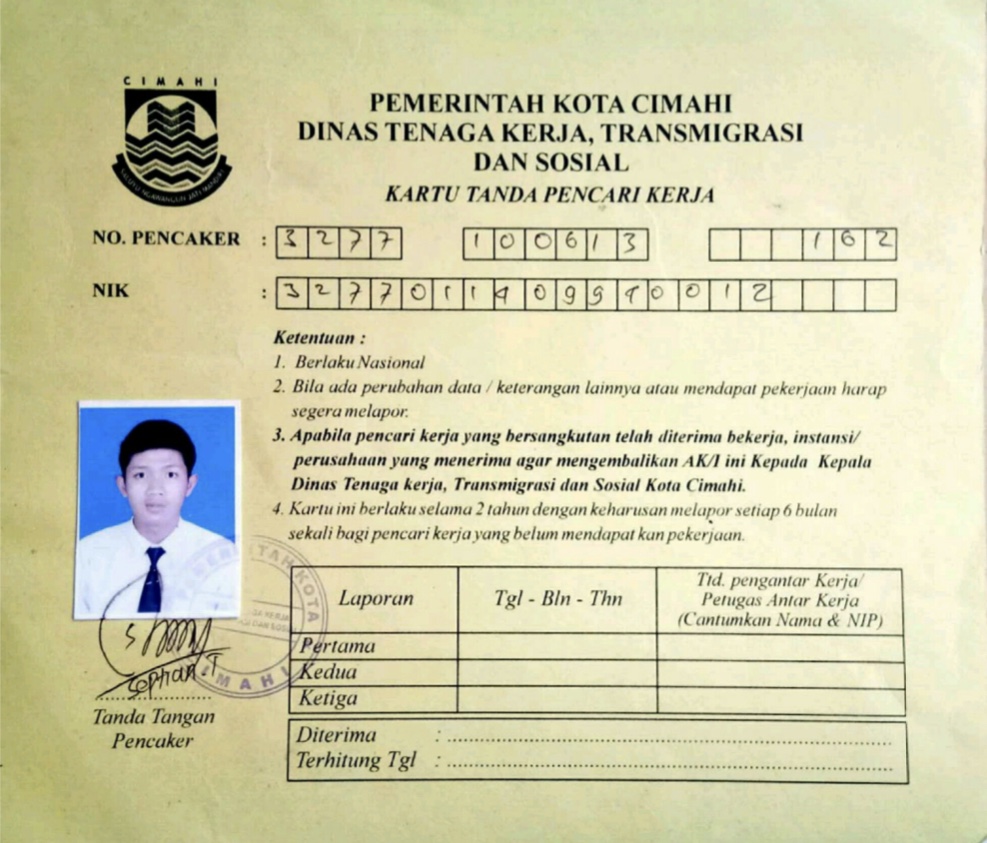 CIMAHI
SALUYU NGAWANGUN JATI MANDIRI
PEMERINTAH KOTA CIMAHI
DINAS TENAGA KERJA, TRANSMIGRASI
DAN SOSIAL
KARTU TANDA PENCARI KERJA
NO. PENCAKER : 3277 100613 162
NIK : 3277011409940012
Ketentuan :
1. Berlaku Nasional
2. Bila ada perubahan data / keterangan lainnya atau mendapat pekerjaan harap
segera melapor.
3. Apabila pencari kerja yang bersangkutan telah diterima bekerja, instansi/
perusahaan yang menerima agar mengembalikan AK/I ini Kepada Kepala
Dinas Tenaga kerja, Transmigrasi dan Sosial Kota Cimahi.
4. Kartu ini berlaku selama 2 tahun dengan keharusan melapor setiap 6 bulan
sekali bagi pencari kerja yang belum mendapat kan pekerjaan.
Laporan Tgl - Bln - Thn Ttd. pengantar Kerja/
Petugas Antar Kerja
(Cantumkan Nama & NIP)
Pertama
Kedua
Ketiga
Diterima : ........................................
Terhitung Tgl : ........................................
KOTA
CIMAHI
Septian.T
Tanda Tangan
Pencaker